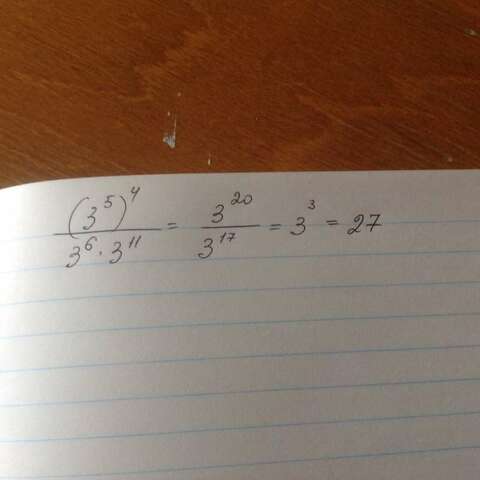 (3^5)^4 / 3^6 · 3^11 = 3^20 / 3^17 = 3^3 = 27